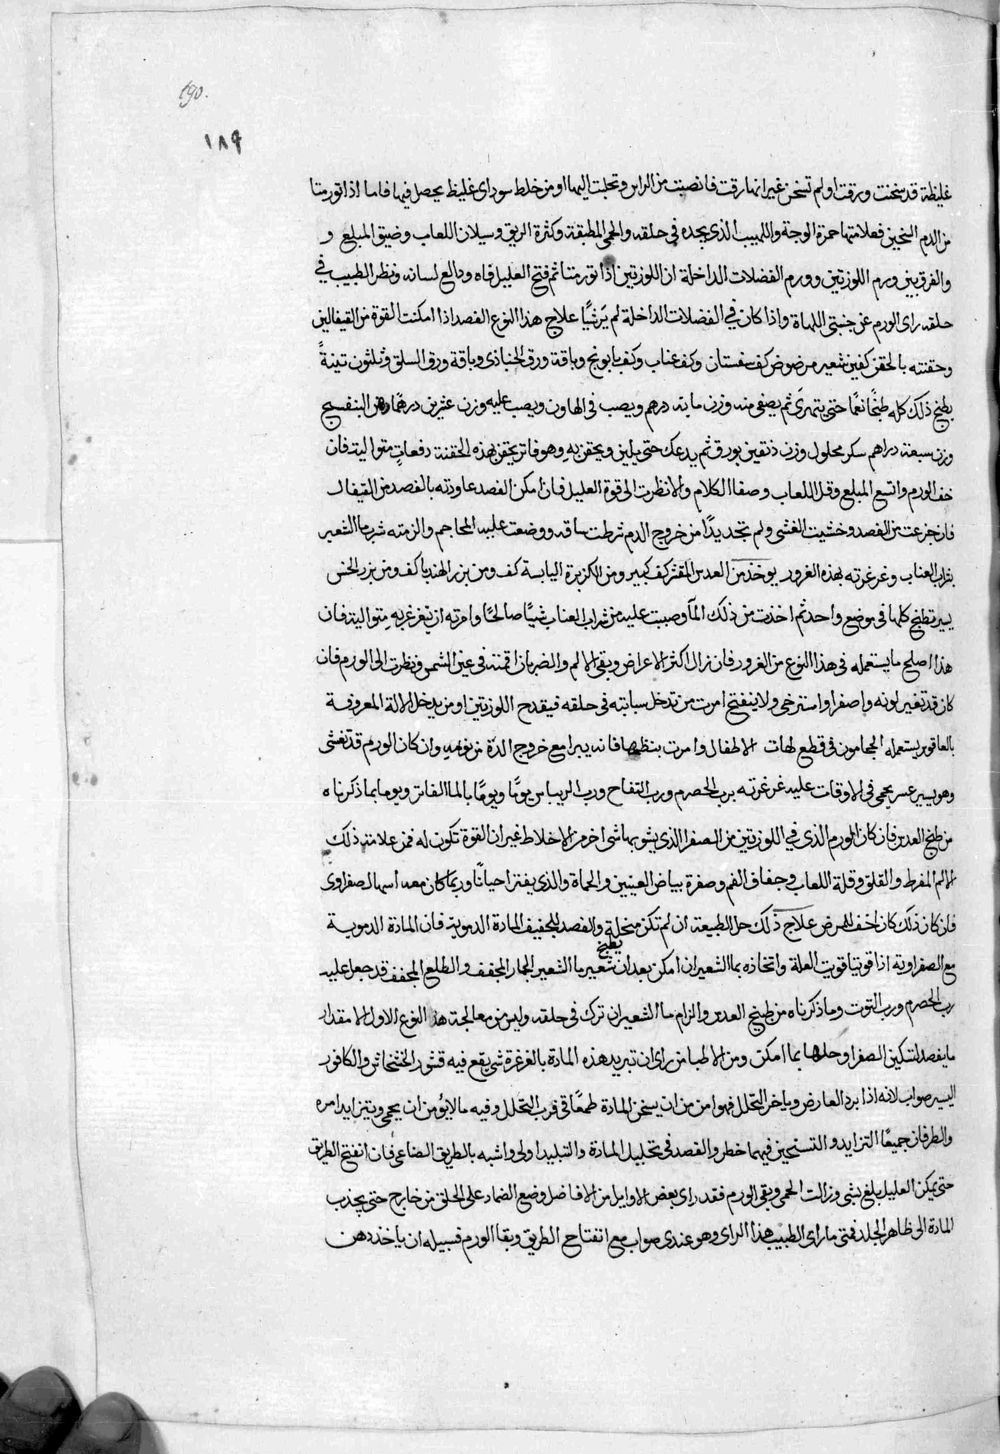 190.
١٨٩
غليظة قد سخنت ورقت او لم تسخن غير انها رقت فانصبت من الراس وتحلبت اليها او من خلط سوداى غليظ يحصل فيها فاما اذا تورمتا
من الدم الثخين فعلامتها حمرة الوجه واللهيب الذى يجده فى حلقه والحمى المطبقة وكثرة الريق وسيلان اللعاب وضيق المبلع و
والفرق بين ورم اللوزتين وورم الفضلات الداخلة ان اللوزتين اذا تورمتا ثم فتح العليل فاه ودالع لسانه ونظر الطبيب فى
حلقه راى الورم عن جنبتى اللهاة واذا كان فى الفضلات الداخلة لم يرشيًا علاج هذا النوع الفصد اذا امكنت القوة من القيفالين
وحقنته بالحقن كفين شعير مرضوض كف سفستان وكف عناب وكف بابونج وباقة ورق الخبازى وباقة ورق السلق وثلثون تينةً
يطبخ ذلك كله طبخًا نعمًا حتى يتهرى ثم يصفى منه وزن مايه درهم ويصب فى الهاون ويصب عليه وزن عشرين درهمًا دهن البنفسج
وزن سبعة دراهم سكر محلول وزن دنقين بورق ثم يدعك حتى يلين ويحقن به وهو فاتر يحقن بهذه الحقنة دفعات متوالية فان
خف الورم واتسع المبلع وقل اللعاب وصفا الكلام والا نظرت الى قوة العليل فان امكن الفصد عاودته بالفصد من القيفال
فان جزعت من الفصد وخشيت الغشى ولم تجد بدًا من خروج الدم شرطت ساقه ووضعت عليه المحاجم والزمته شرب ما الشعير
بشراب العناب وغرغرته بهذه الغرور يوخذ من العدس المقشر كف كبير ومن الكزبرة اليابسة كف ومن بزر الهندبا كف ومن بزر الخس
يسير تطبخ كلها فى موضع واحد ثم اخذت من ذلك المآ وصببت عليه من شراب العناب شيًا صالحًا وامرته ان يتغرغر به متوالية فان
هذا اصلح ما يستعمله فى هذا النوع من الغرور فان زال اكثر الاعراض وبقى الالم والضربان اقمته فى عين الشمس ونظرت الى الورم فان
كان قد تغير لونه واصفر او استرخى ولا ينفتح امرت من تدخل سبابته فى حلقه فيقدح اللوزتين او من يدخل الالة المعروفة
بالعاقور يستعمله الحجامون فى قطع لهات الاطفال وامرت بنظمها فانه يبرا مع خروج المدّة من يومه وان كان الورم قد تغشى
وهو يسير عسر يحمى فى الاوقات عليه غرغرته برب الحصرم ورب التفاح ورب الريباس يومًا ويومًا بالما الفاتر ويوما بما ذكرناه
من طبخ العدس فان كان الورم الذى فى اللوزتين من الصفرا الذى يشوبها شى اخر من الاخلاط غير ان القوة تكون له فمن علامته ذلك
الالم المفرط والقلق وقلة اللعاب وجفاف الفم وصفرة بياض العينين والحماة والذى يفتر احيانًا وربما كان معه اسهال صفراوى
فان كان ذلك كان اخف للمرض علاج ذلك حل الطبيعة ان لم تكن منحلة والفصد لتجفيف المادة الدموية فان المادة الدموية
مع الصفراوية اذا قويتا قويت العلة واتخاذه بما الشعير ان امكن بعد ان يطبخ بشعير ما الشعير الجمار المجفف والطلع المجفف قد جعل عليه
رب الحصرم ورب التوت وما ذكرناه من طبخ العدس والزام ما الشعير ان ترك فى حلقه وليس من معالجة هذ النوع الاول الا مقدار
ما يفصد لتسكين الصفرا وحلها بما امكن ومن الاطبا من راى ان تبريد هذه المادة بالغرغرة شى يقع فيه قشور الخشخاش والكافور
اليسير صواب لانه اذا برد العارض وتاخر التحلل فهو امن من ان يسخن المادة طمعًا فى قرب التحلل وفيه ما لا يؤمن ان يحمى ويتزايد امره
والطرفان جميعًا التزايد والتسخين فيهما خطر والفصد فى تحليل المادة والتبليد اولى واشبه بالطريق الصناعى فان انفتح الطريق
حتى يمكن العليل بلغ شى وزالت الحمى وبقى الورم فقد راى بعض الاوايل من الافاضل وضع الضماد على الحلق من خارج حتى يجذب
المادة الى ظاهر الجلد فمتى ما راى الطبيب هذا الراى وهو عندى صواب مع انفتاح الطريق وبقا الورم فسبيله ان ياخذ دهن